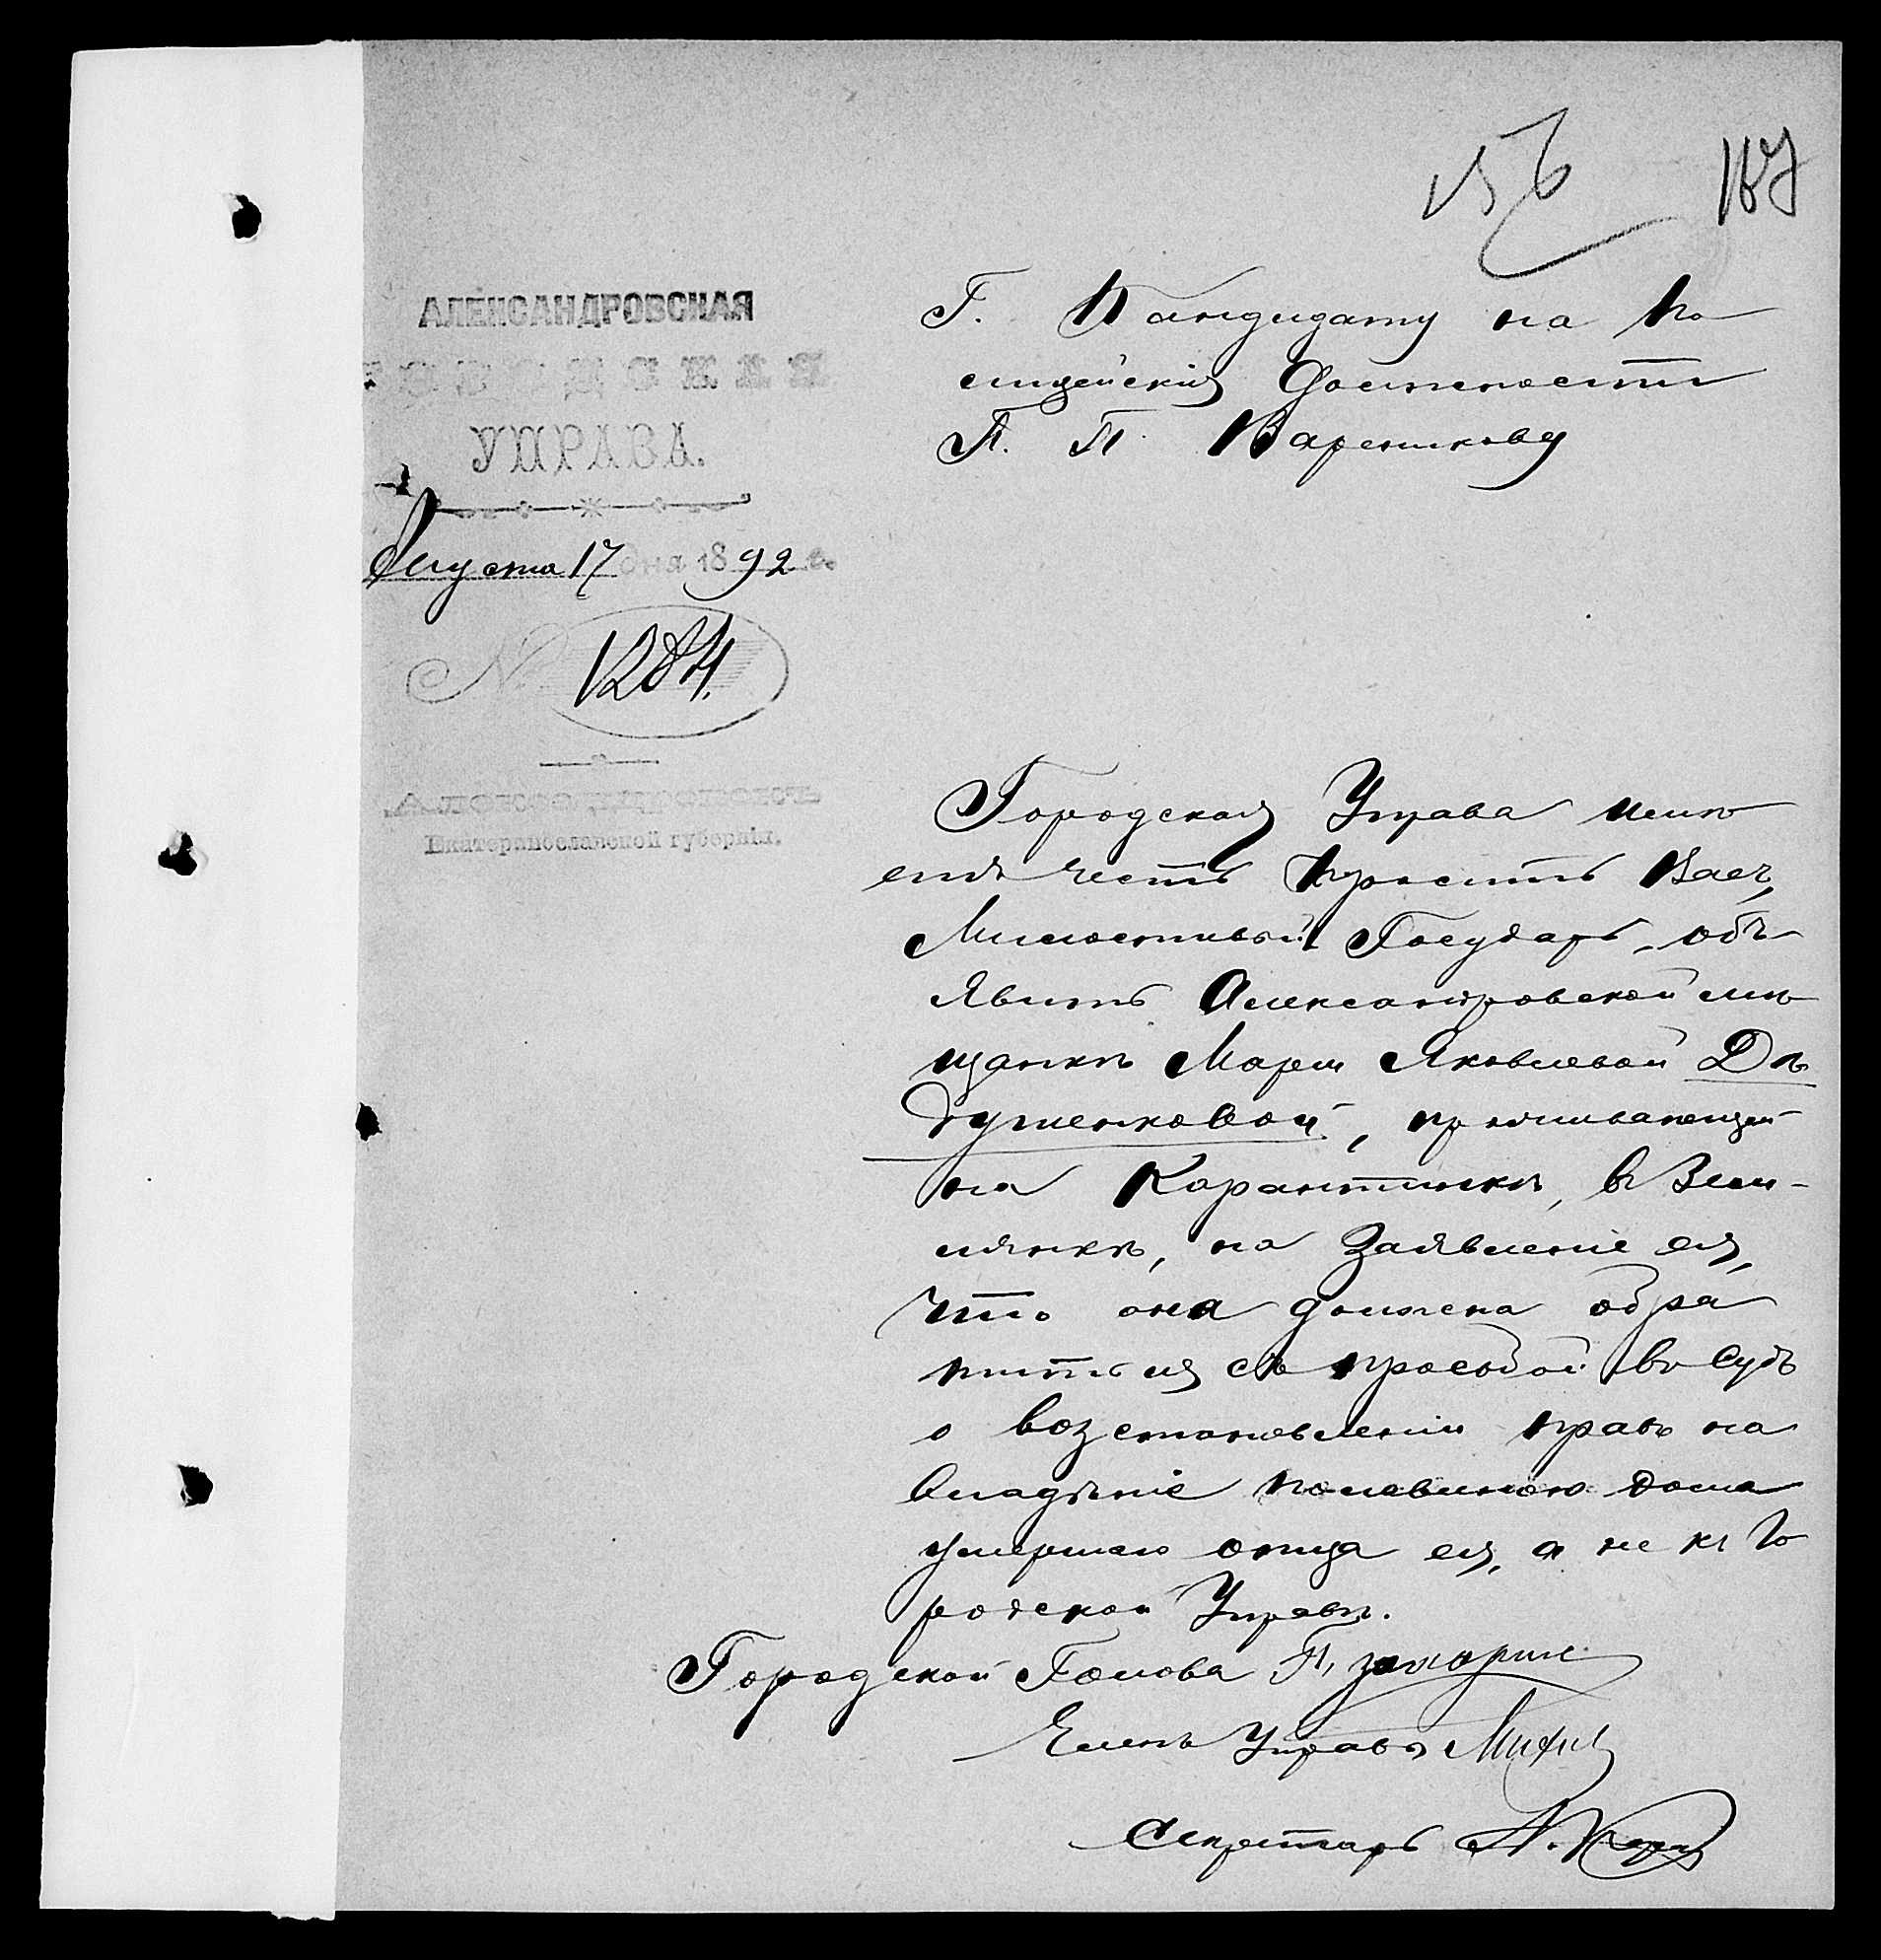 156 187
АЛЕКСАНДРОВСКАЯ
ГОРОДСКАЯ
УПРАВА.
Августа 17 дня 1892 г.
№ 1284.
Александровскъ
Екатеринославской губерніи.
Г. Кандидату на По
лицейскія должности
П. П. Вареникову
Городская Управа имѣ
етъ честь просить Васъ,
Милостивый Государь, объ
явить Александровской мѣ
щанкѣ Маріи Яковлевой Дѣ
думенковой, проживающей
на Карантинкѣ, въ Зем-
лянкѣ, на Заявленіе ея,
что она должна обра
титься съ просьбой въ Судъ
о возстановленіи правъ на
владѣніе половиною дома
умершаго отца ея, а не къ Го
родской Управѣ.
Городской Голова П. Захарин
Членъ Управы
Секретарь А.